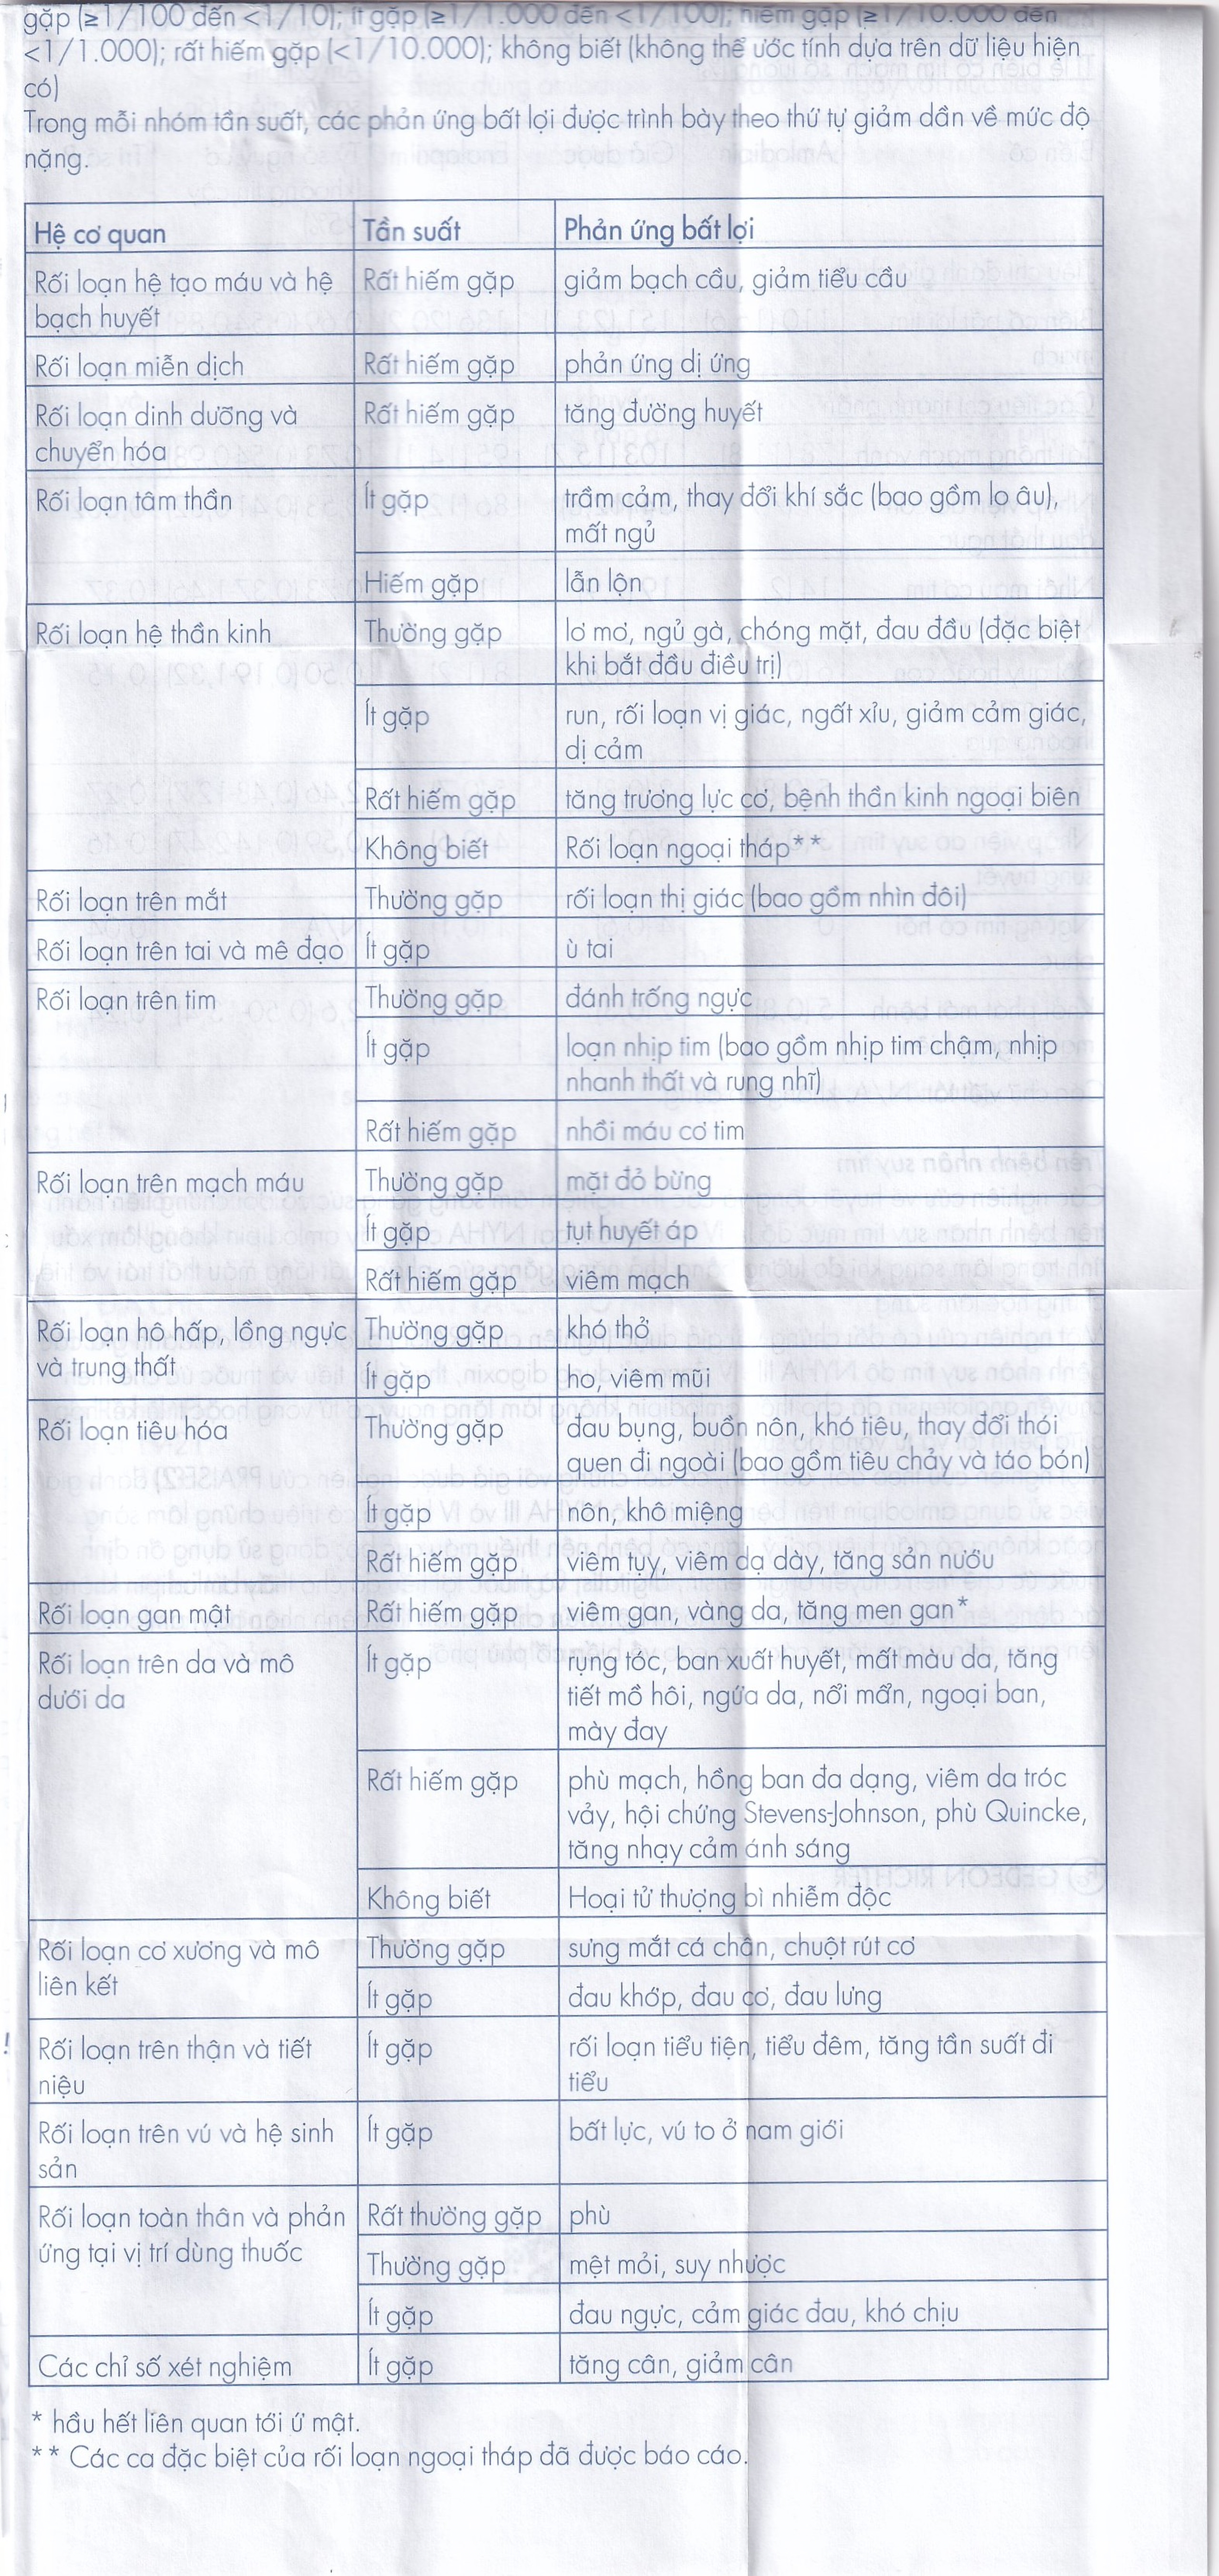 gặp (≥1/100 đến <1/10); ít gặp (≥1/1.000 đến <1/100); hiếm gặp (≥1/10.000 đến
<1/1.000); rất hiếm gặp (<1/10.000); không biết (không thể ước tính dựa trên dữ liệu hiện
có)
Trong mỗi nhóm tần suất, các phản ứng bất lợi được trình bày theo thứ tự giảm dần về mức độ
nặng.
Hệ cơ quan Tần suất Phản ứng bất lợi
Rối loạn hệ tạo máu và hệ Rất hiếm gặp giảm bạch cầu, giảm tiểu cầu
bạch huyết
Rối loạn miễn dịch Rất hiếm gặp phản ứng dị ứng
Rối loạn dinh dưỡng và Rất hiếm gặp tăng đường huyết
chuyển hóa
Rối loạn tâm thần Ít gặp trầm cảm, thay đổi khí sắc (bao gồm lo âu),
mất ngủ
Hiếm gặp lẫn lộn
Rối loạn hệ thần kinh Thường gặp lơ mơ, ngủ gà, chóng mặt, đau đầu (đặc biệt
khi bắt đầu điều trị)
Ít gặp run, rối loạn vị giác, ngất xỉu, giảm cảm giác,
dị cảm
Rất hiếm gặp tăng trương lực cơ, bệnh thần kinh ngoại biên
Không biết Rối loạn ngoại tháp**
Rối loạn trên mắt Thường gặp rối loạn thị giác (bao gồm nhìn đôi)
Rối loạn trên tai và mê đạo Ít gặp ù tai
Rối loạn trên tim Thường gặp đánh trống ngực
Ít gặp loạn nhịp tim (bao gồm nhịp tim chậm, nhịp
nhanh thất và rung nhĩ)
Rất hiếm gặp nhồi máu cơ tim
Rối loạn trên mạch máu Thường gặp mặt đỏ bừng
Ít gặp tụt huyết áp
Rất hiếm gặp viêm mạch
Rối loạn hô hấp, lồng ngực Thường gặp khó thở
và trung thất
Ít gặp ho, viêm mũi
Rối loạn tiêu hóa Thường gặp đau bụng, buồn nôn, khó tiêu, thay đổi thói
quen đi ngoài (bao gồm tiêu chảy và táo bón)
Ít gặp nôn, khô miệng
Rất hiếm gặp viêm tụy, viêm dạ dày, tăng sản nướu
Rối loạn gan mật Rất hiếm gặp viêm gan, vàng da, tăng men gan*
Rối loạn trên da và mô Ít gặp rụng tóc, ban xuất huyết, mất màu da, tăng
dưới da tiết mồ hôi, ngứa da, nổi mẩn, ngoại ban,
mày đay
Rất hiếm gặp phù mạch, hồng ban đa dạng, viêm da tróc
vảy, hội chứng Stevens-Johnson, phù Quincke,
tăng nhạy cảm ánh sáng
Không biết Hoại tử thượng bì nhiễm độc
Rối loạn cơ xương và mô Thường gặp sưng mắt cá chân, chuột rút cơ
liên kết
Ít gặp đau khớp, đau cơ, đau lưng
Rối loạn trên thận và tiết Ít gặp rối loạn tiểu tiện, tiểu đêm, tăng tần suất đi
niệu tiểu
Rối loạn trên vú và hệ sinh Ít gặp bất lực, vú to ở nam giới
sản
Rối loạn toàn thân và phản Rất thường gặp phù
ứng tại vị trí dùng thuốc Thường gặp mệt mỏi, suy nhược
Ít gặp đau ngực, cảm giác đau, khó chịu
Các chỉ số xét nghiệm Ít gặp tăng cân, giảm cân
* hầu hết liên quan tới ứ mật.
** Các ca đặc biệt của rối loạn ngoại tháp đã được báo cáo.